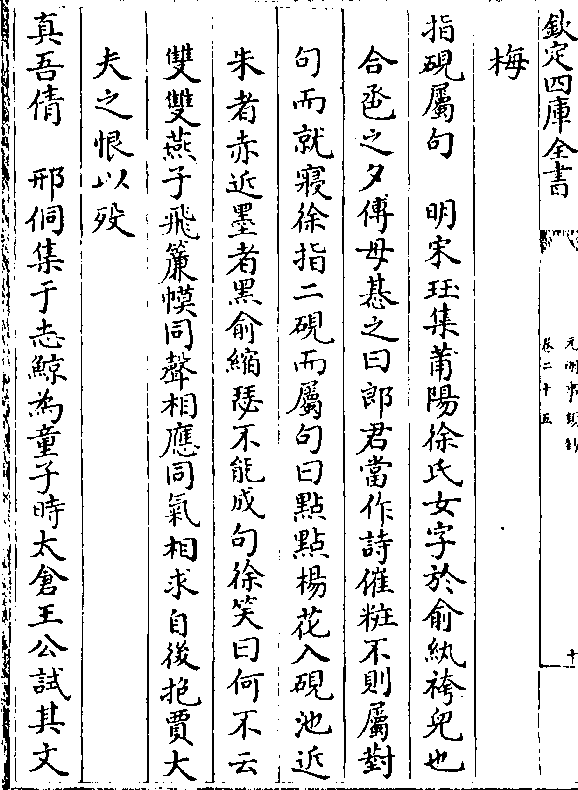 欽定四庫全書
元明事類鈔
卷二十五
十
梅
指硯屬句　明宋珏集莆陽徐氏女字於俞紈袴兒也
合巹之夕傅母惎之曰郎君當作詩催粧不則屬對
句而就寢徐指二硯而屬句曰點點楊花入硯池近
朱者赤近墨者黑俞縮瑟不能成句徐笑曰何不云
雙雙燕子飛簾幙同聲相應同氣相求自後抱賈大
夫之恨以歿
真吾倩　邢侗集于志鯨為童子時太倉王公試其文